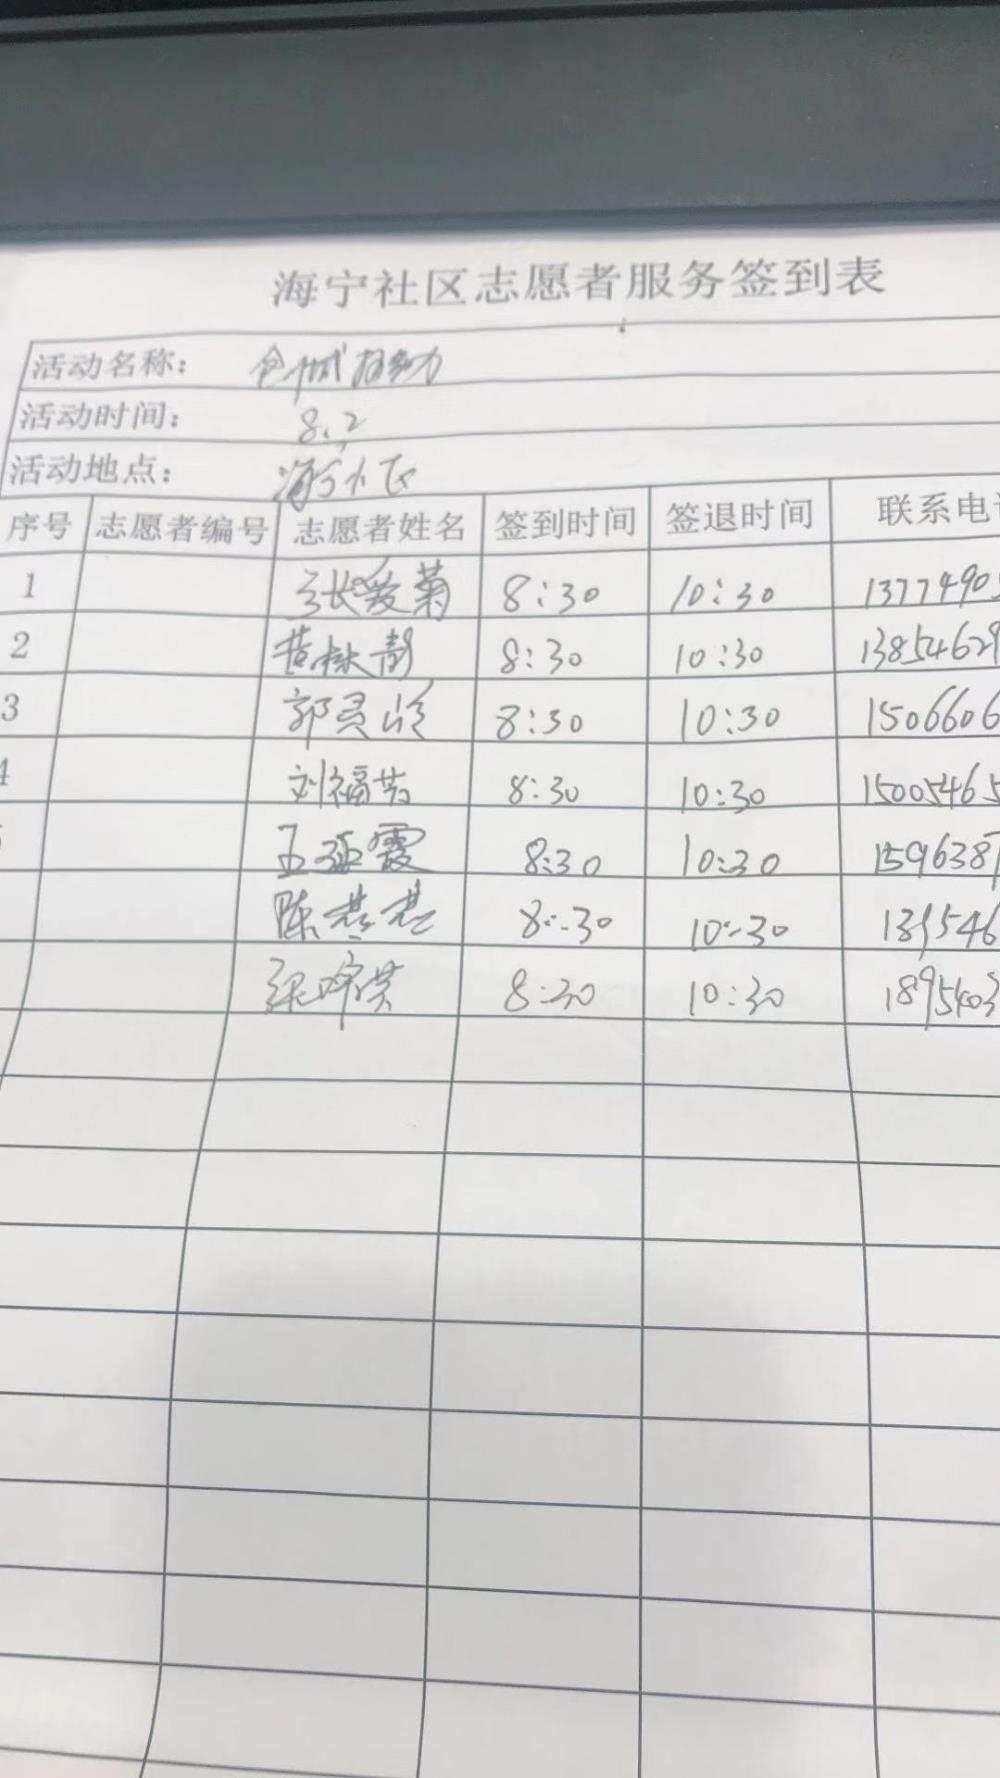 海宁社区志愿者服务签到表
活动名称：
活动时间： 8.2
活动地点： 海宁小区
序号 志愿者编号 志愿者姓名 签到时间 签退时间 联系电
1 张爱菊 8:30 10:30 1377490
2 黄林静 8:30 10:30 13854629
3 郭灵玲 8:30 10:30 1506606
刘福芳 8:30 10:30 15005465
王亚霞 8:30 10:30 159638
陈 8:30 10:30 139546
8:30 10:30 1895403